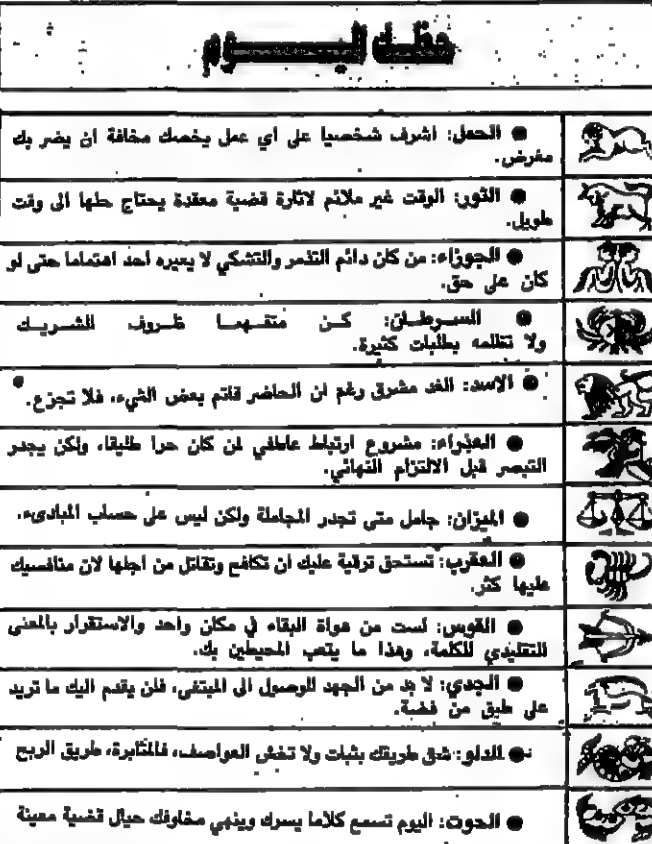 حظك اليـــــوم
● الحمل: اشرف شخصيا على اي عمل يخصك مخافة ان يضر بك
مغرض.
● الثور: الوقت غير ملائم لاثارة قضية معقدة يحتاج حلها الى وقت
طويل.
● الجوزاء: من كان دائم التذمر والتشكي لا يعيره احد اهتماما حتى لو
كان على حق.
● الســرطــان: كــن متفــهمــا ظــروف الشــريــك
ولا تظلمه بطلبات كثيرة.
● الاسد: الغد مشرق رغم ان الحاضر قاتم بعض الشيء، فلا تجزع.
● العذراء: مشروع ارتباط عاطفي لمن كان حرا طليقا، ولكن يجدر
التبصر قبل الالتزام النهائي.
● الميزان: جامل متى تجدر المجاملة ولكن ليس على حساب المبادىء.
● العقرب: تستحق ترقية عليك ان تكافح وتقاتل من اجلها لان منافسيك
عليها كثر.
● القوس: لست من هواة البقاء في مكان واحد والاستقرار بالمعنى
التقليدي للكلمة، وهذا ما يتعب المحيطين بك.
● الجدي: لا بد من الجهد للوصول الى المبتغى، فلن يقدم اليك ما تريد
على طبق من فضة.
● الدلو: شق طريقك بثبات ولا تخش العواصف، فالمثابرة، طريق الربح
● الحوت: اليوم تسمع كلاما يسرك وينهي مخاوفك حيال قضية معينة